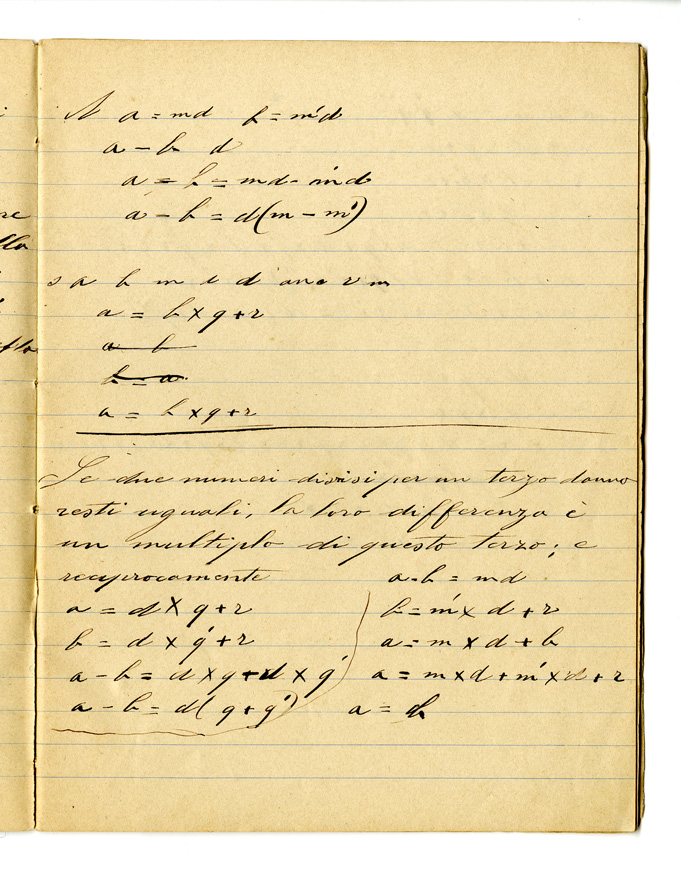 a = md b = m'd
a - b d
a = b = md - m'd
a - b = d(m - m')
s a b m d d' anc r m
a = b × q + r
a b
b = a
a = b × q + r
Se due numeri divisi per un terzo danno
resti uguali, la loro differenza è
un multiplo di questo terzo; e
reciprocamente
a = d × q + r
b = d × q' + r
a - b = d × q + d × q'
a - b = d( q + q')
a - b = md
b = m' × d + r
a = m × d + b
a = m × d + m' × d + r
a = d